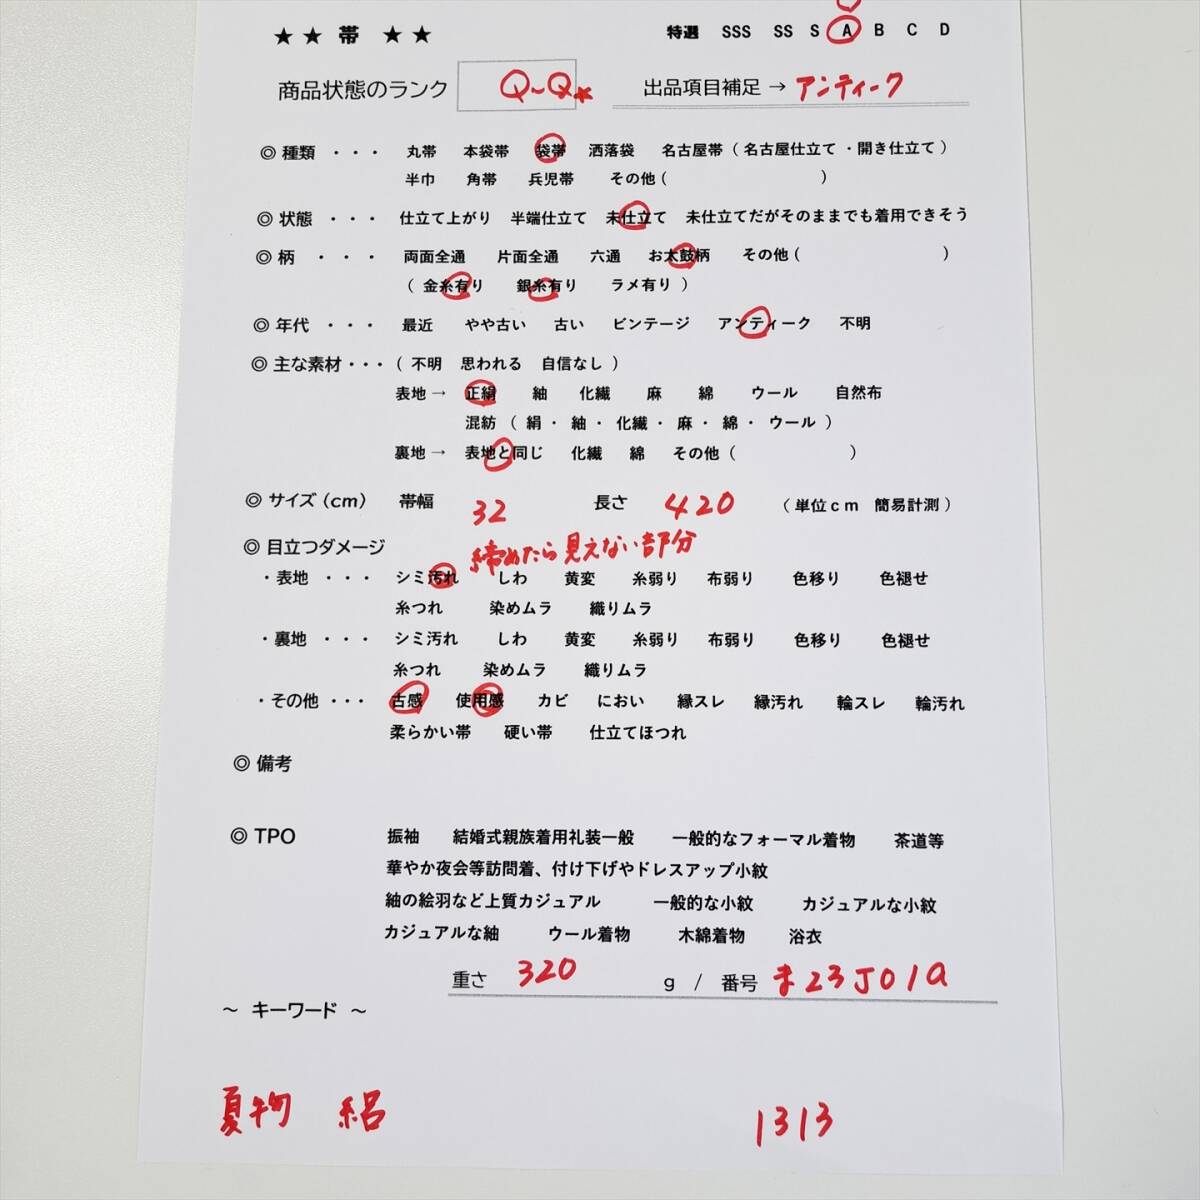 ★ ★ 帯 ★ ★ 特選 SSS SS S A B C D
商品状態のランク Q~Q★ 出品項目補足 → アンティーク
◎ 種類 ・・・ 丸帯 本袋帯 袋帯 洒落袋 名古屋帯 ( 名古屋仕立て ・開き仕立て )
半巾 角帯 兵児帯 その他 ( )
◎ 状態 ・・・ 仕立て上がり 半端仕立て 未仕立て 未仕立てだがそのままでも着用できそう
◎ 柄 ・・・ 両面全通 片面全通 六通 お太鼓柄 その他 ( )
( 金糸有り 銀糸有り ラメ有り )
◎ 年代 ・・・ 最近 やや古い 古い ビンテージ アンティーク 不明
◎ 主な素材・・・ ( 不明 思われる 自信なし )
表地 → 正絹 紬 化繊 麻 綿 ウール 自然布
混紡 ( 絹 ・ 紬 ・ 化繊 ・ 麻 ・ 綿 ・ ウール )
裏地 → 表地と同じ 化繊 綿 その他 ( )
◎ サイズ (cm) 帯幅 32 長さ 420 ( 単位cm 簡易計測 )
◎ 目立つダメージ 締めたら見えない部分
・表地 ・・・ シミ汚れ しわ 黄変 糸弱り 布弱り 色移り 色褪せ
糸つれ 染めムラ 織りムラ
・裏地 ・・・ シミ汚れ しわ 黄変 糸弱り 布弱り 色移り 色褪せ
糸つれ 染めムラ 織りムラ
・その他 ・・・ 古感 使用感 カビ におい 縁スレ 縁汚れ 輪スレ 輪汚れ
柔らかい帯 硬い帯 仕立てほつれ
◎ 備考
◎ TPO 振袖 結婚式親族着用礼装一般 一般的なフォーマル着物 茶道等
華やか夜会等訪問着、付け下げやドレスアップ小紋
紬の絵羽など上質カジュアル 一般的な小紋 カジュアルな小紋
カジュアルな紬 ウール着物 木綿着物 浴衣
重さ 320 g / 番号 ま23J01a
～ キーワード ～
夏物 絽 1313